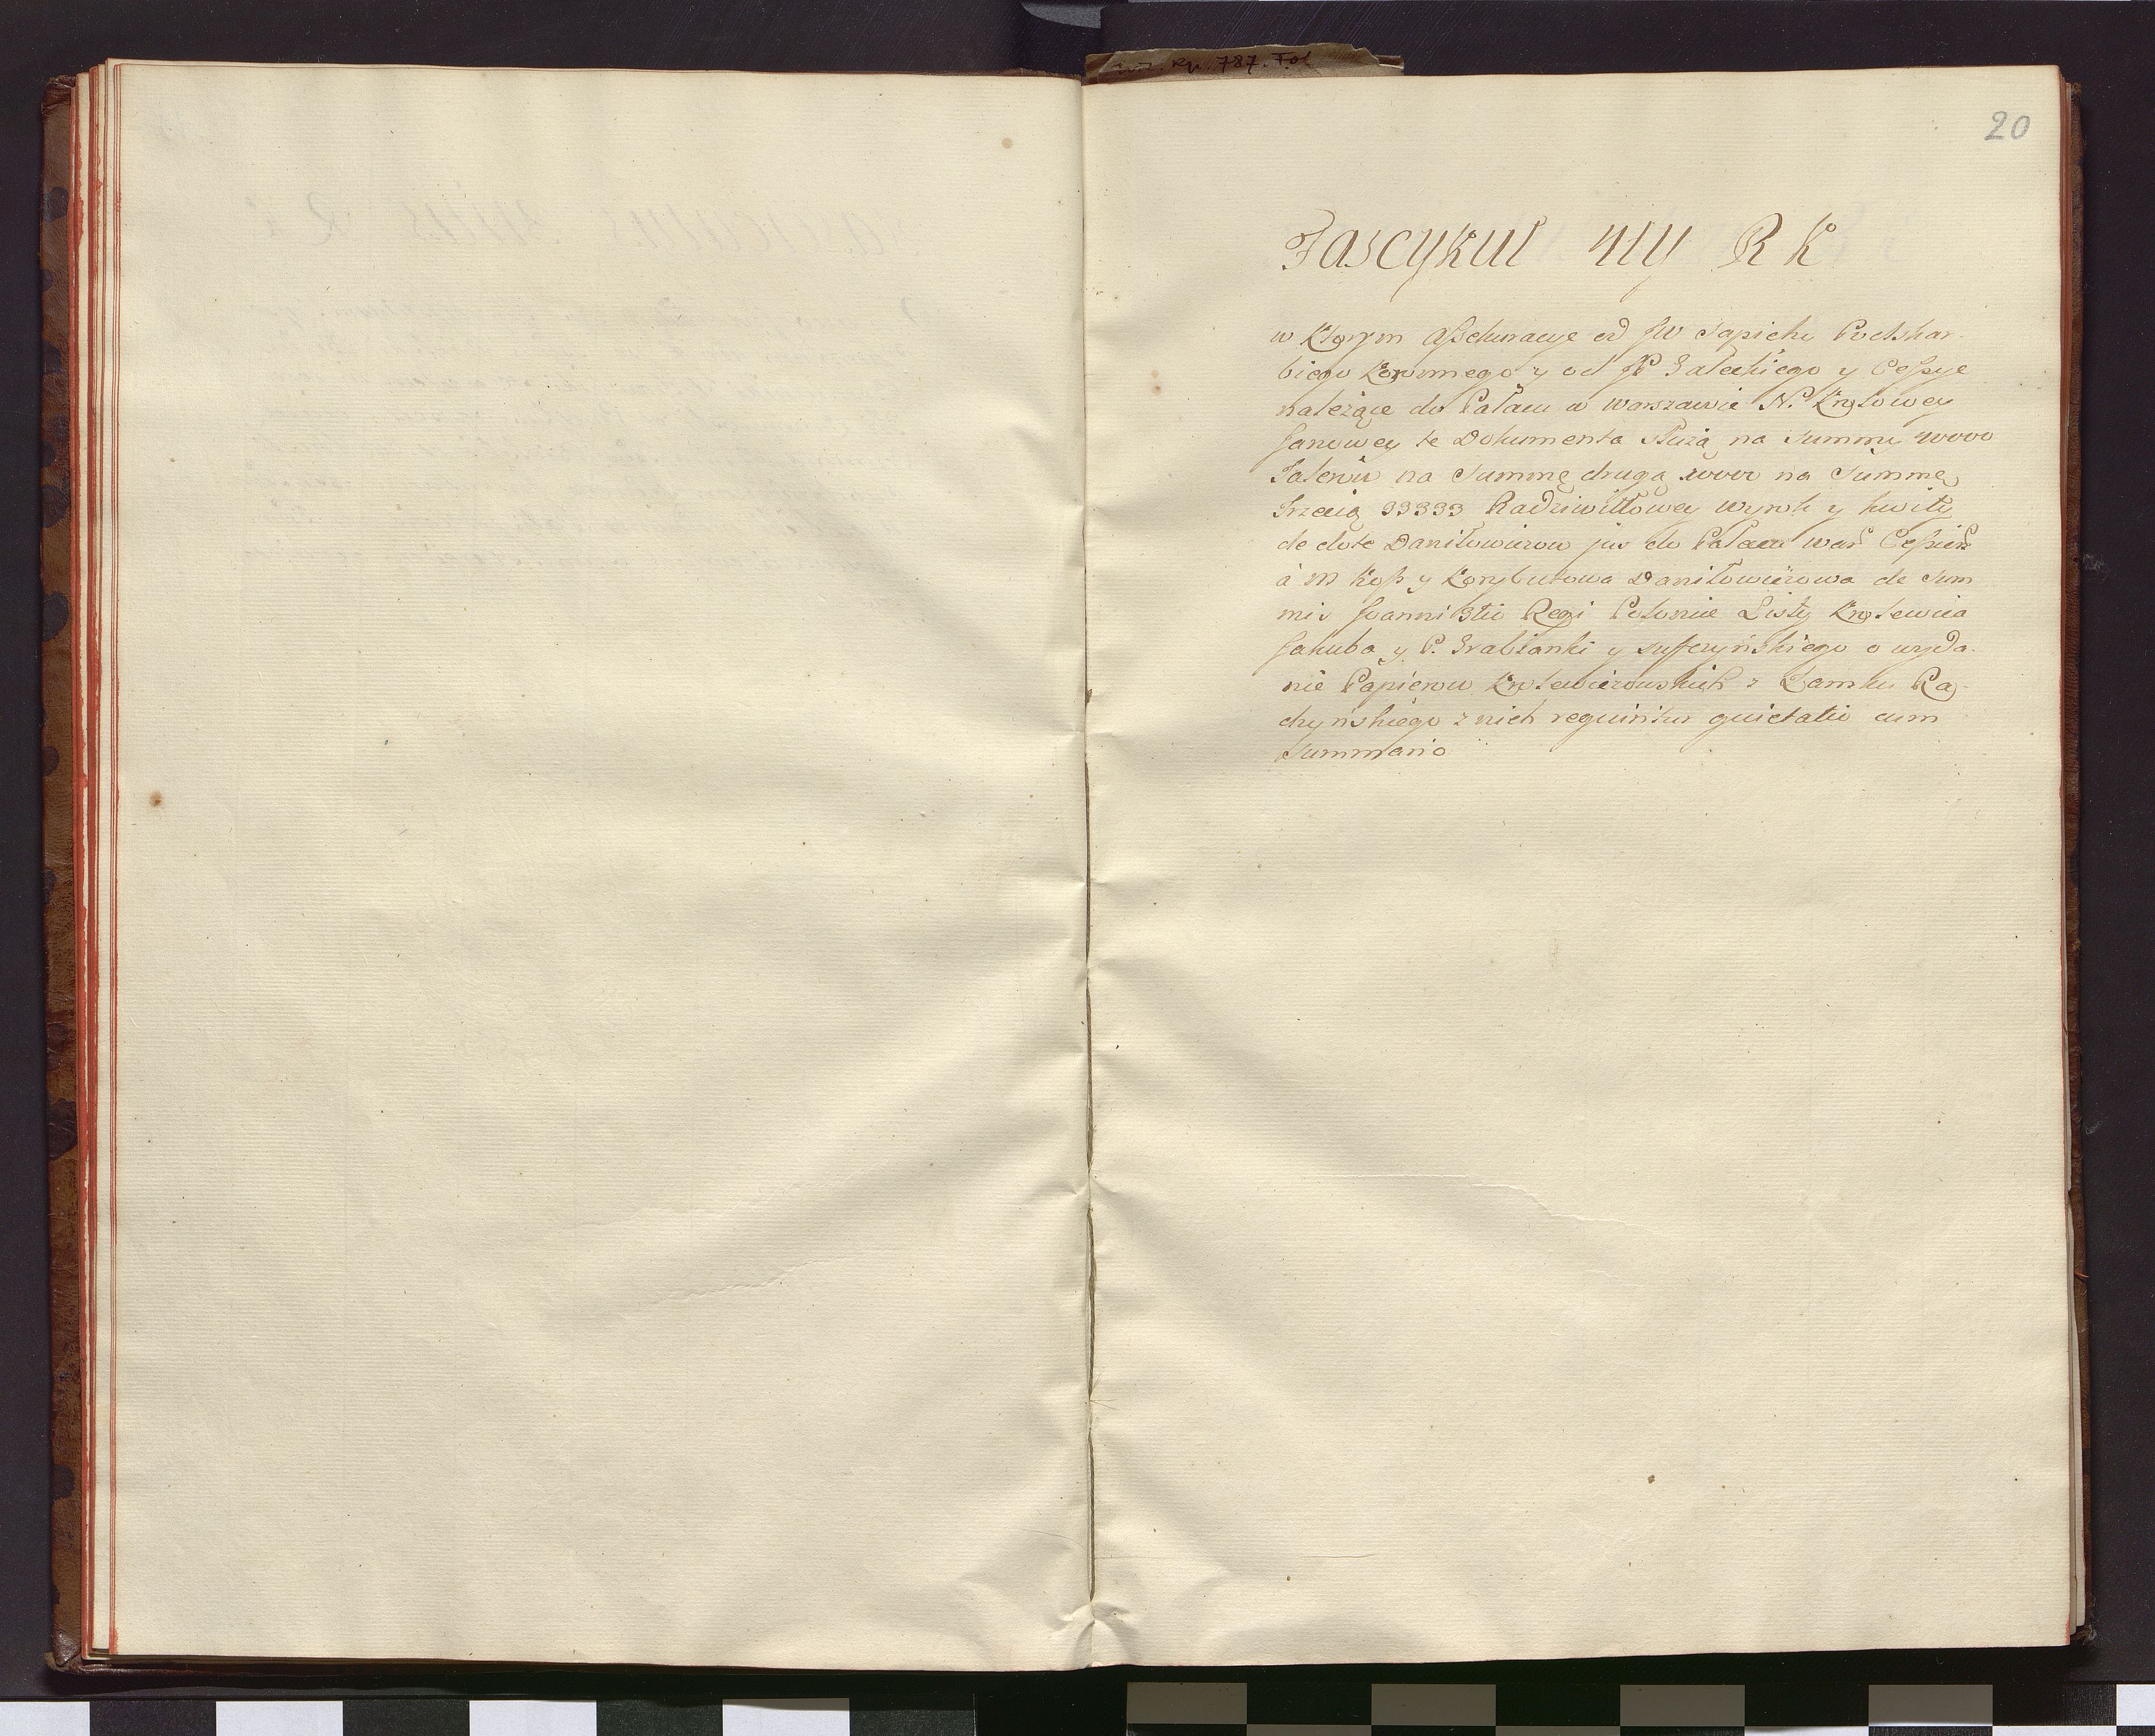 Rp. 787. Fol
20
Fascykuł 4ty R K
w Ktorym Assekuracye od JW Sapiehi Podskar-
biego Koronnego y od JP Gałeckiego y Cessye
należące do Pałacu w Warszawie N. Krolowey
Janowey te Dokumenta służą na Summę 40000
Talerow na Summę drugą na Summę
Trzecią 33333 Radziwiłłowey wyrok y kwity
de dote Daniłowiczow jus do Pałacu
á M y Korybutowa Daniłowiczowa de Sum
mis Joanni 3tio Regi Polonie Listy Krolewica
Jakuba y P. Grabianki y o wyda-
nie Papierow Krolewiczowskich z Zamku Ra-
chynskiego z nich requiritur quietatio cum
Summario